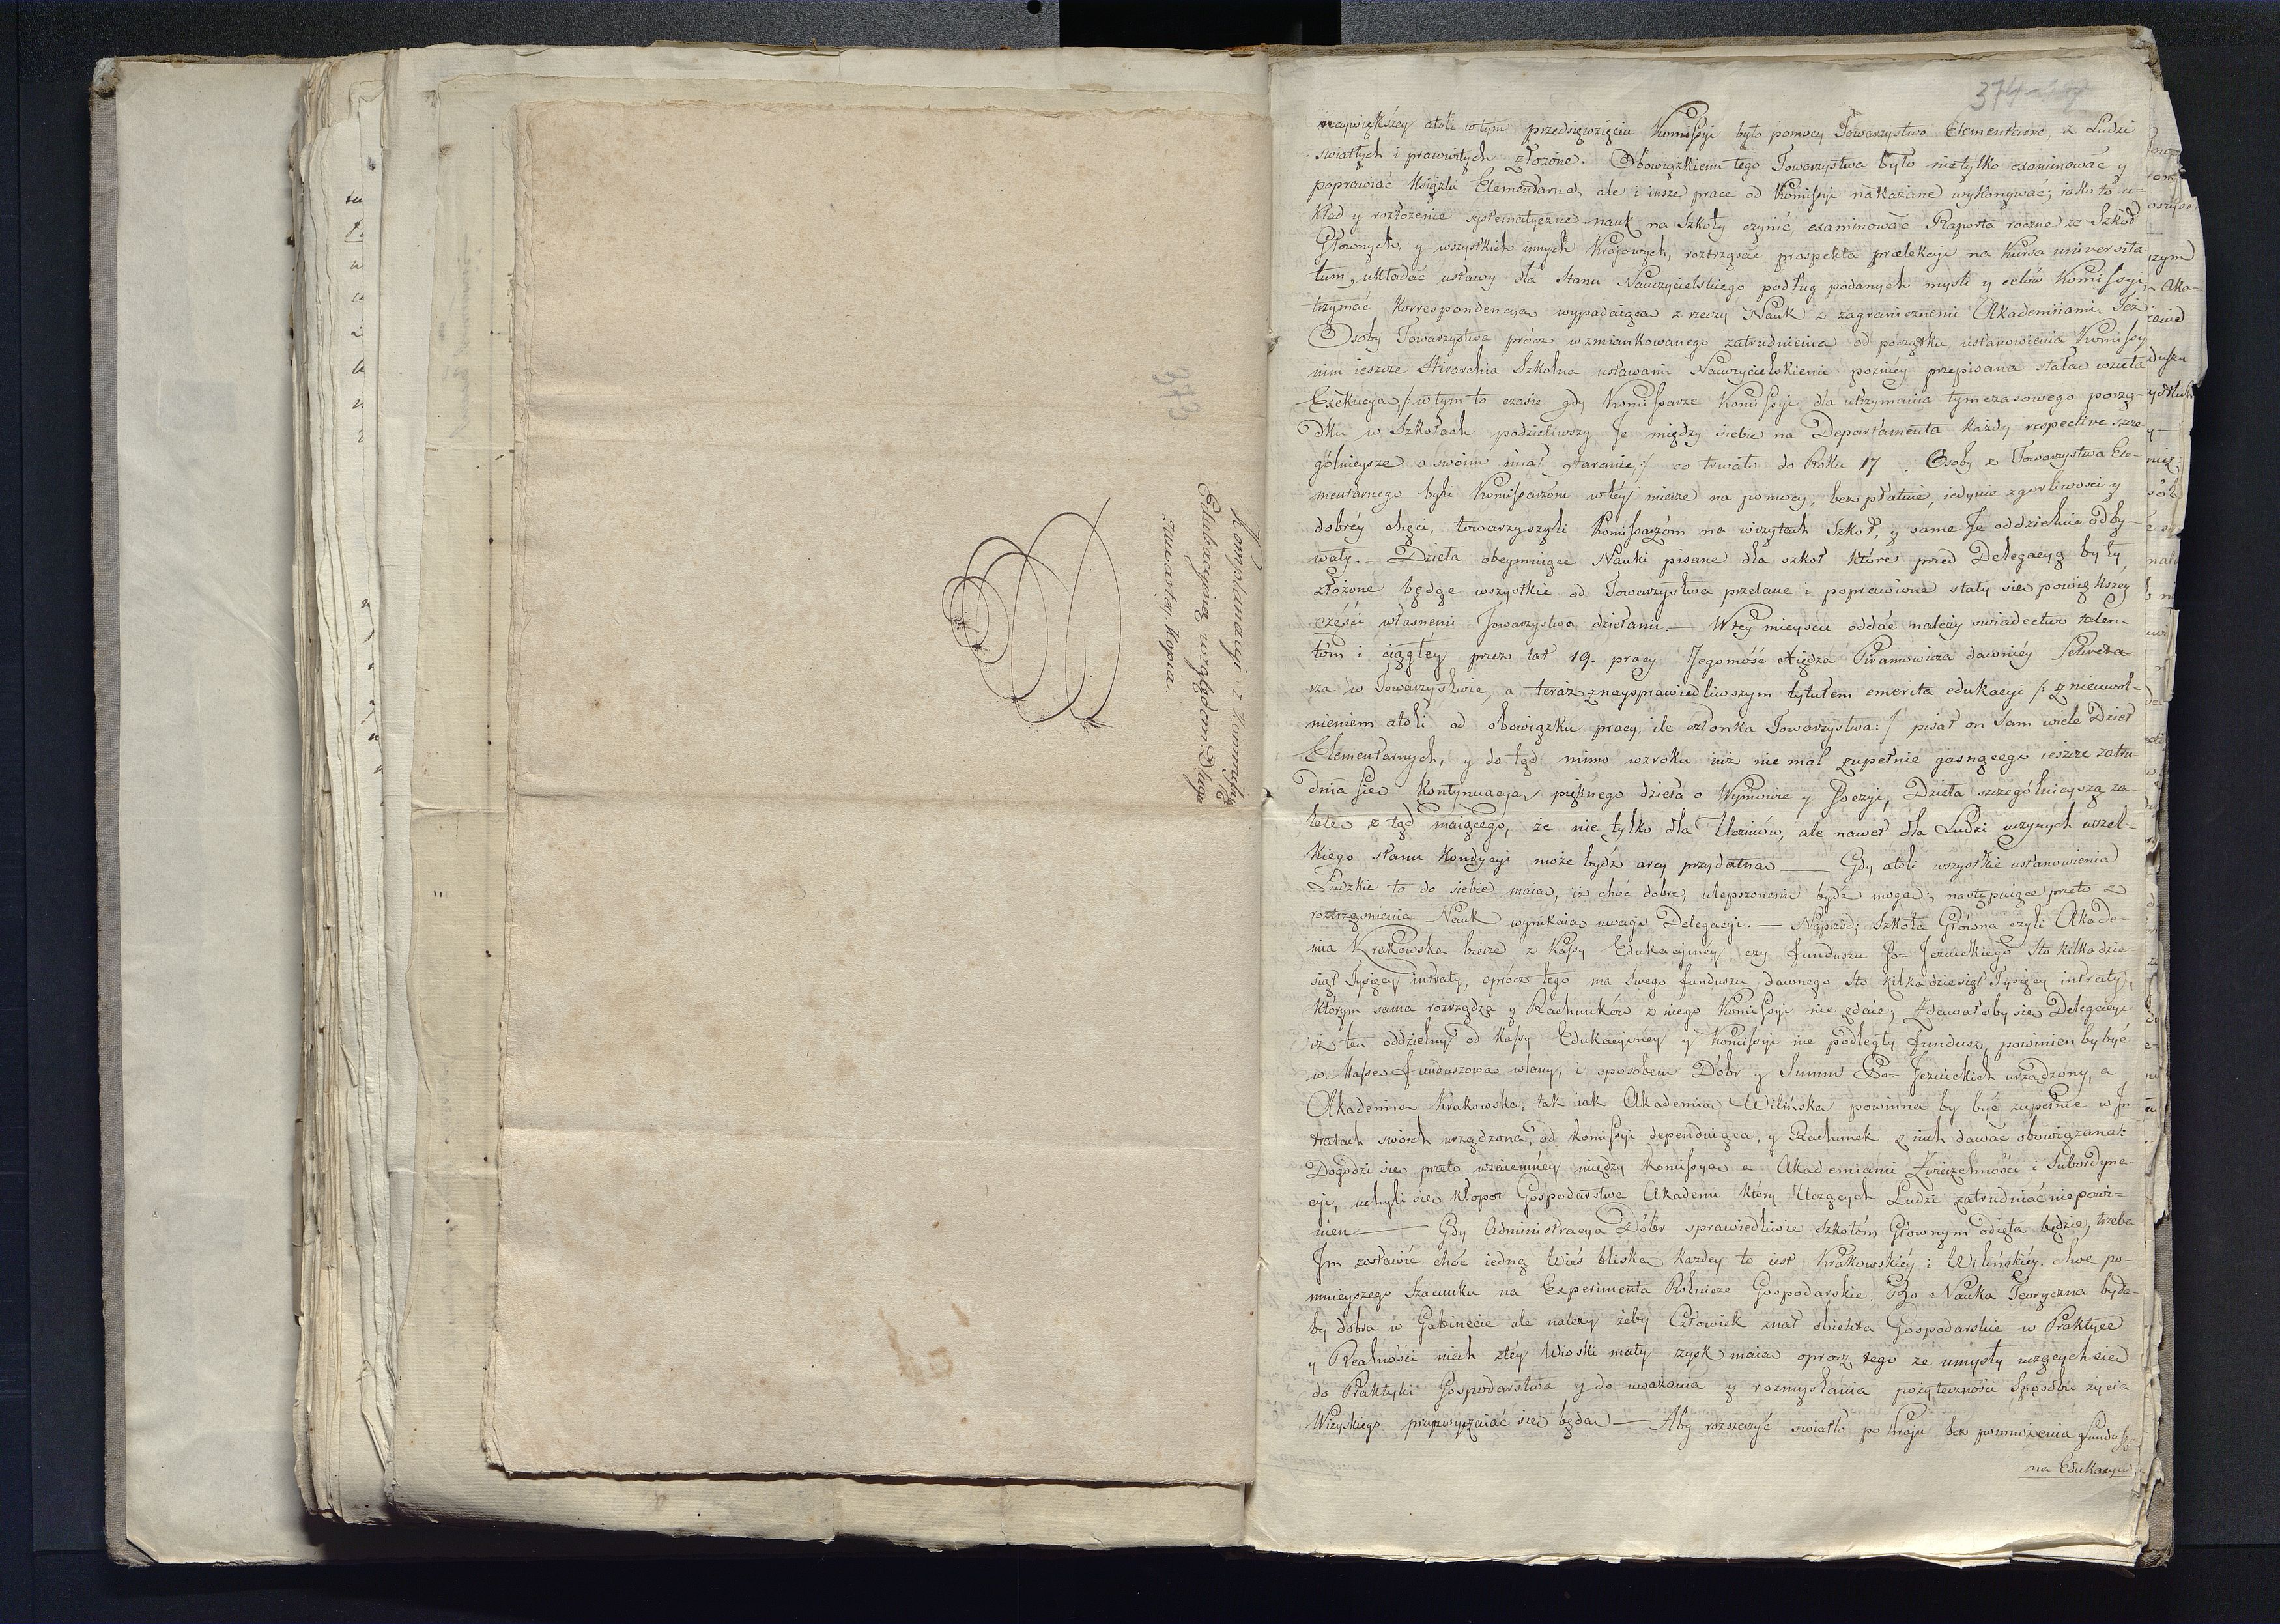 373
Komplanacyi z Kommissyą
Edukacyiną względem Długu
zawartey, Kopia.
374
naywiększey atoli w tym przedsięwzięciu Komissyi było pomocą Towarzystwo Elementarne, z Ludzi
swiatłych i prawowitych złożone. Obowiązkiem tego Towarzystwa było nietylko examinować y
poprawiać książki Elementarne, ale i insze prace od Komissyi nakazane wykonywać; iako to u-
kład y rozłożenie systematyczne nauk na Szkoły czynić, examinować Raporta roczne ze Szkół
Głownych, y wszystkich innych Krajowych, roztrząsać prospekta prelekcyi na Kursa universita-
tum, układać ustawy dla Stanu Nauczycielskiego podług podanych mysli y celów Komissyi,
trzymać Korrespondencyą wypadaiącą z rzeczy Nauk z zagranicznemi Akademiiami. Też
Osoby Towarzystwa prócz wzmiankowanego zatrudnienia od początku ustanowienia Komissy
nim ieszcze Hirarchia Szkolna ustawami Nauczycielskiemi pozniéy przepisana stała wzieła
Exekucyą /: w tym to czasie gdy Komissarze Komissyi dla utrzymania tymczasowego porzą-
dku w Szkołach podzieliwszy Je między siebie na Departamenta każdy respective szcze
gólnieysze o swoim miał staranie :/ co trwało do Roku 17 . Osoby z Towarzystwa Ele-
mentarnego byli Komissarzom w tey mierze na pomocy, bezpłatnie, iedynie z gorliwosci y
dobréy chęci, towarzyszyli Komissarzóm na wizytach Szkół, y same Je oddzielnie odby-
wały. — Dzieła obeymuiące Nauki pisane dla szkoł które przed Delegacyą były
złożone będąc wszystkie od Towarzystwa przelane i poprawione stały sie powiększey
części własnemi Towarzystwa dziełami. — W tey mieyscu oddać należy swiadectwo talen-
tóm i ciągłéy przez lat 19. pracy Jegomość Xiędza Piramowicza dawniéy Sekreta-
rza w Towarzystwie, a teraz z naysprawiedliwszym tytułem emerita edukacyi /: z nieuwol-
nieniem atoli od obowiązku pracy, ile członka Towarzystwa: / pisał on sam wiele Dzieł
Elementarnych, y do tąd mimo wzroku iuż nie mal zupełnie gasnącego ieszcze zatru-
dnia sie Kontynuacyą pięknego dzieła o Wymowie y Poezyi, Dzieła szczególnieyszą za-
lete z tąd maiącego, że nie tylko dla Uczniów, ale nawet dla Ludzi uczonych wszel-
kiego stanu Kondycyi może bydź arcy przydatna — Gdy atoli wszystkie ustanowienia
Ludzkie to do siebie maia, iż choć dobre, ulepszonemi bydź moga; następuiące przeto z
roztrząsnienia Nauk wynikaia uwagi Delegacyi. — Naprzód; Szkoła Główna czyli Akade-
mia Krakowska bierze z Kassy Edukacyinéy czy funduszu Po= Jezuickiego sto kilkadzie-
siąt Tysięcy intraty, oprócz tego ma swego funduszu dawnego sto kilkadziesiąt Tysięcy intraty,
którym sama rozrządza y Rachunków z niego Komissyi nie zdaie; Zdawałoby sie Delegacyi
iż ten oddzielny od Kassy Edukacyiney y Komissyi nie podległy fundusz, powinien by być
w Masse funduszowa wlany, i sposobem Dóbr y Summ Po= Jezuickich urządzony, a
Akademia Krakowska, tak iak Akademia Wilińska powinna by być zupełnie w In-
tratach swoich urządzona, od komissyi dependuiąca, y Rachunek z nich dawać obowiązana:
Dogodzi sie przeto wzaiemney między Komissya a Akademiami Zwierzchności i Subordyna-
cyi, uchyli sie kłopot Gospodarstwa Akademii który Uczących Ludzi zatrudniać niepowi-
nien — Gdy Administracya Dóbr sprawiedliwie Szkołom Głownym odięta będzie, trzeba
Im zostawić choć iedną Wieś bliską każdey to iest Krakowskiéy i Wilińskiéy. choć po-
mnieyszego Szacunku na Experimenta Rolnicze Gospodarskie. Bo Nauka Teoryczna była-
by dobra w Gabinecie ale należy żeby Człowiek znał obiekta Gospodarskie w Praktyce
y Realności niech z téy Wioski mały zysk maia oprocz tego ze umysły uczących sie
do Praktyki Gospodarstwa y do uważania y rozmyslania pożyteczności Sposobu zycia
Wieyskiego przyzwyczaiać sie będa — Aby rozszerzyć swiatło po kraju bez pomnożenia fundusz
na Edukacyie